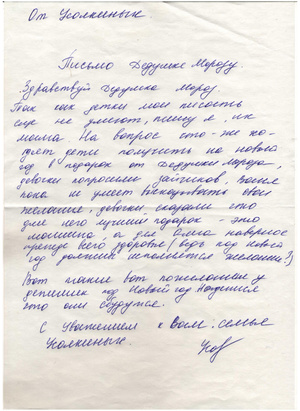 От Усолкиных.
Письмо Дедушке Морозу.
Здравствуй Дедушка Мороз.
Так как детки мои писать
еще не умеют, пишу я, их
мама. На вопрос что-же хо-
дети получить на новый
год в подарок от Дедушки Мороза,
девочки попросили зайчиков, Ваня
пока не умеет свои
желание, девочки сказали что
для него лучший подарок - это
машина, а для наверное
прежде всего здоровье (ведь под новый
год должны исполнятся желания!)
Вот такие вот пожелания у
детишек под Новый год. Надеемся
что они сбудутся.
С Уважением к Вам. семья
Усолкиных.